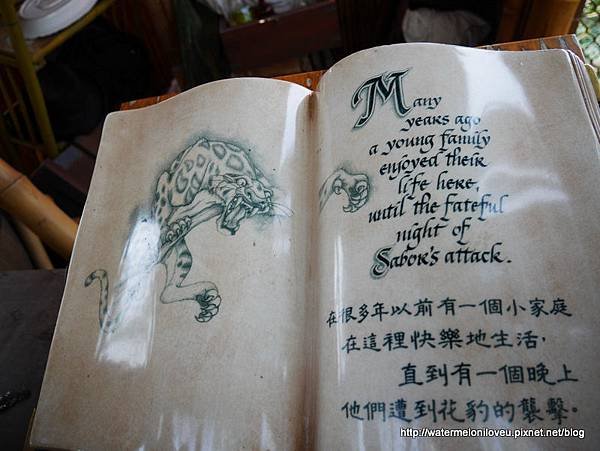 Many
years ago
a young family
enjoyed their
life here,
until the fateful
night of
Sabor's attack.
在很多年以前有一個小家庭
在這裡快樂地生活，
直到有一個晚上
他們遭到花豹的襲擊。
http://watermeloniloveu.pixnet.net/blog